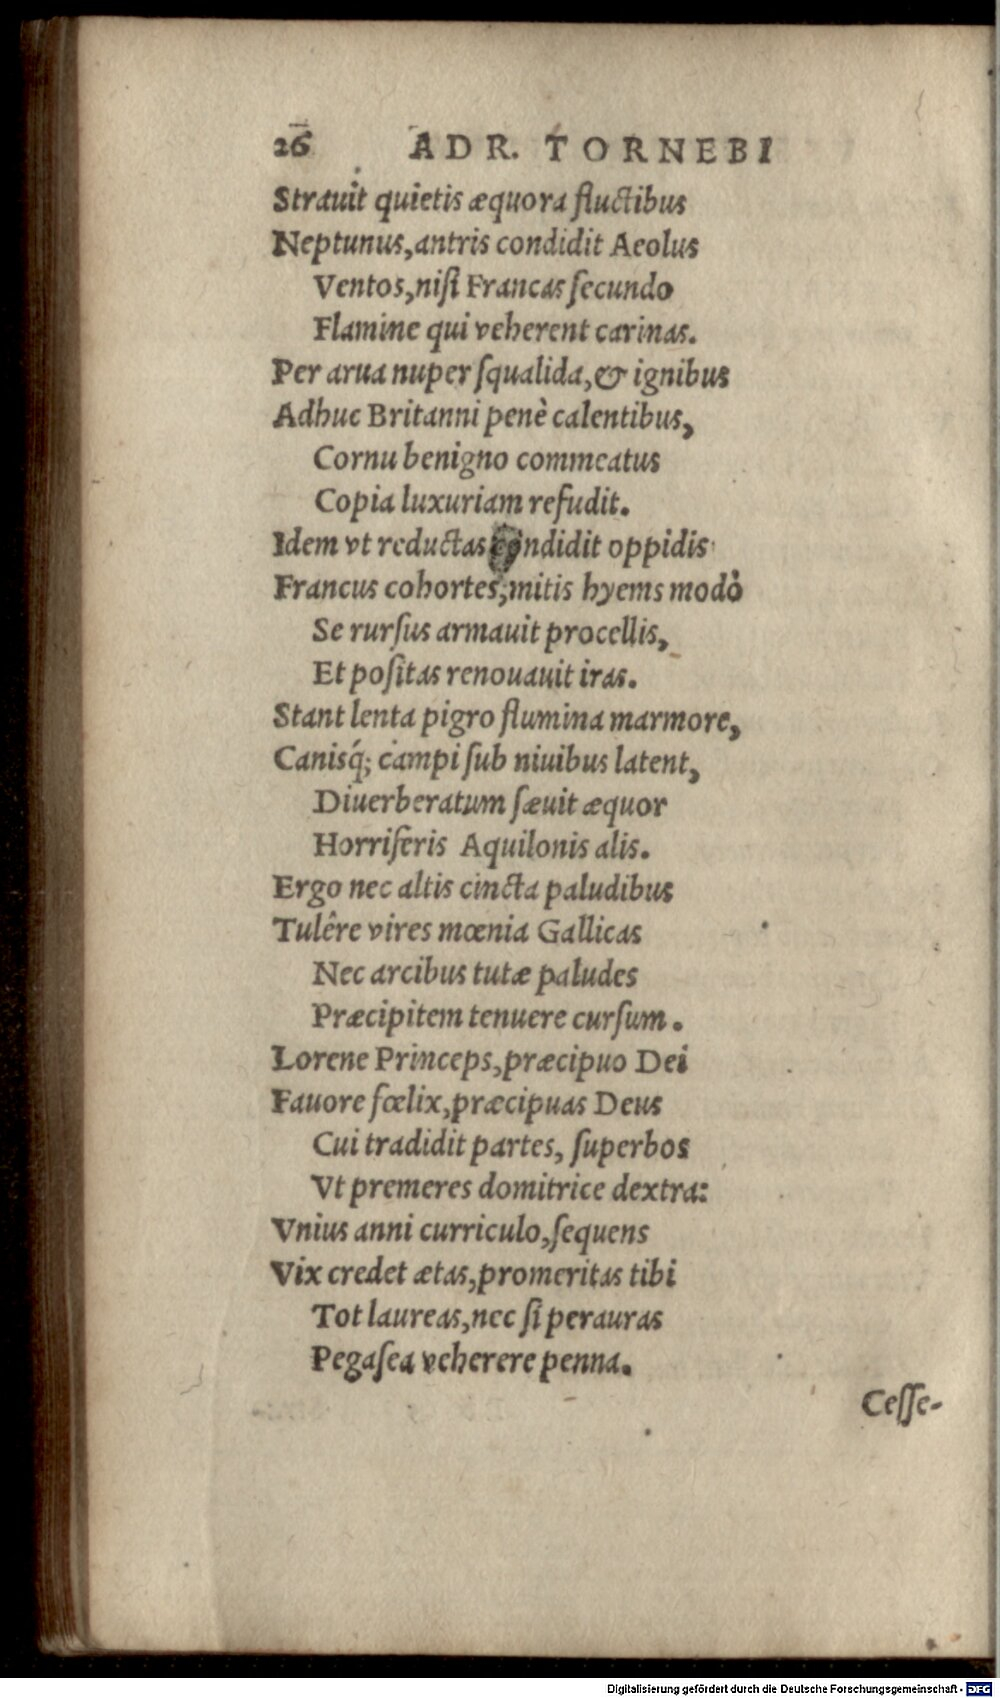 26 ADR. TORNEBI
Strauit quietis æquora fluctibus
Neptunus, antris condidit Aeolus
Ventos, niſi Francas ſecundo
Flamine qui veherent carinas.
Per arua nuper ſqualida, & ignibus
Adhuc Britanni penè calentibus,
Cornu benigno commeatus
Copia luxuriam refudit.
Idem vt reductas condidit oppidis
Francus cohortes, mitis hyems modò
Se rurſus armauit procellis,
Et poſitas renouauit iras.
Stant lenta pigro flumina marmore,
Canisq́; campi ſub niuibus latent,
Diuerberatum ſæuit æquor
Horriferis Aquilonis alis.
Ergo nec altis cincta paludibus
Tulêre vires mœnia Gallicas
Nec arcibus tutæ paludes
Præcipitem tenuere curſum.
Lorene Princeps, præcipuo Dei
Fauore fœlix, præcipuas Deus
Cui tradidit partes, ſuperbos
Vt premeres domitrice dextra:
Vnius anni curriculo, ſequens
Vix credet ætas, promeritas tibi
Tot laureas, nec ſi per auras
Pegaſea veherere penna.
Ceſſe-
Digitalisierung gefördert durch die Deutsche Forschungsgemeinschaft - DFG